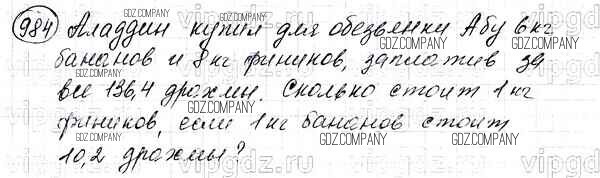 984 Аладдин купил для обезьянки Абу 6 кг
бананов и 8 кг фиников, заплатив за
все 136,4 драхмы. Сколько стоит 1 кг
фиников, если 1 кг бананов стоит
10,2 драхмы?
GDZ.COMPANY
GDZ.COMPANY
GDZ.COMPANY
GDZ.COMPANY
GDZ.COMPANY
GDZ.COMPANY
GDZ.COMPANY
GDZ.COMPANY
GDZ.COMPANY
vipgdz.ru